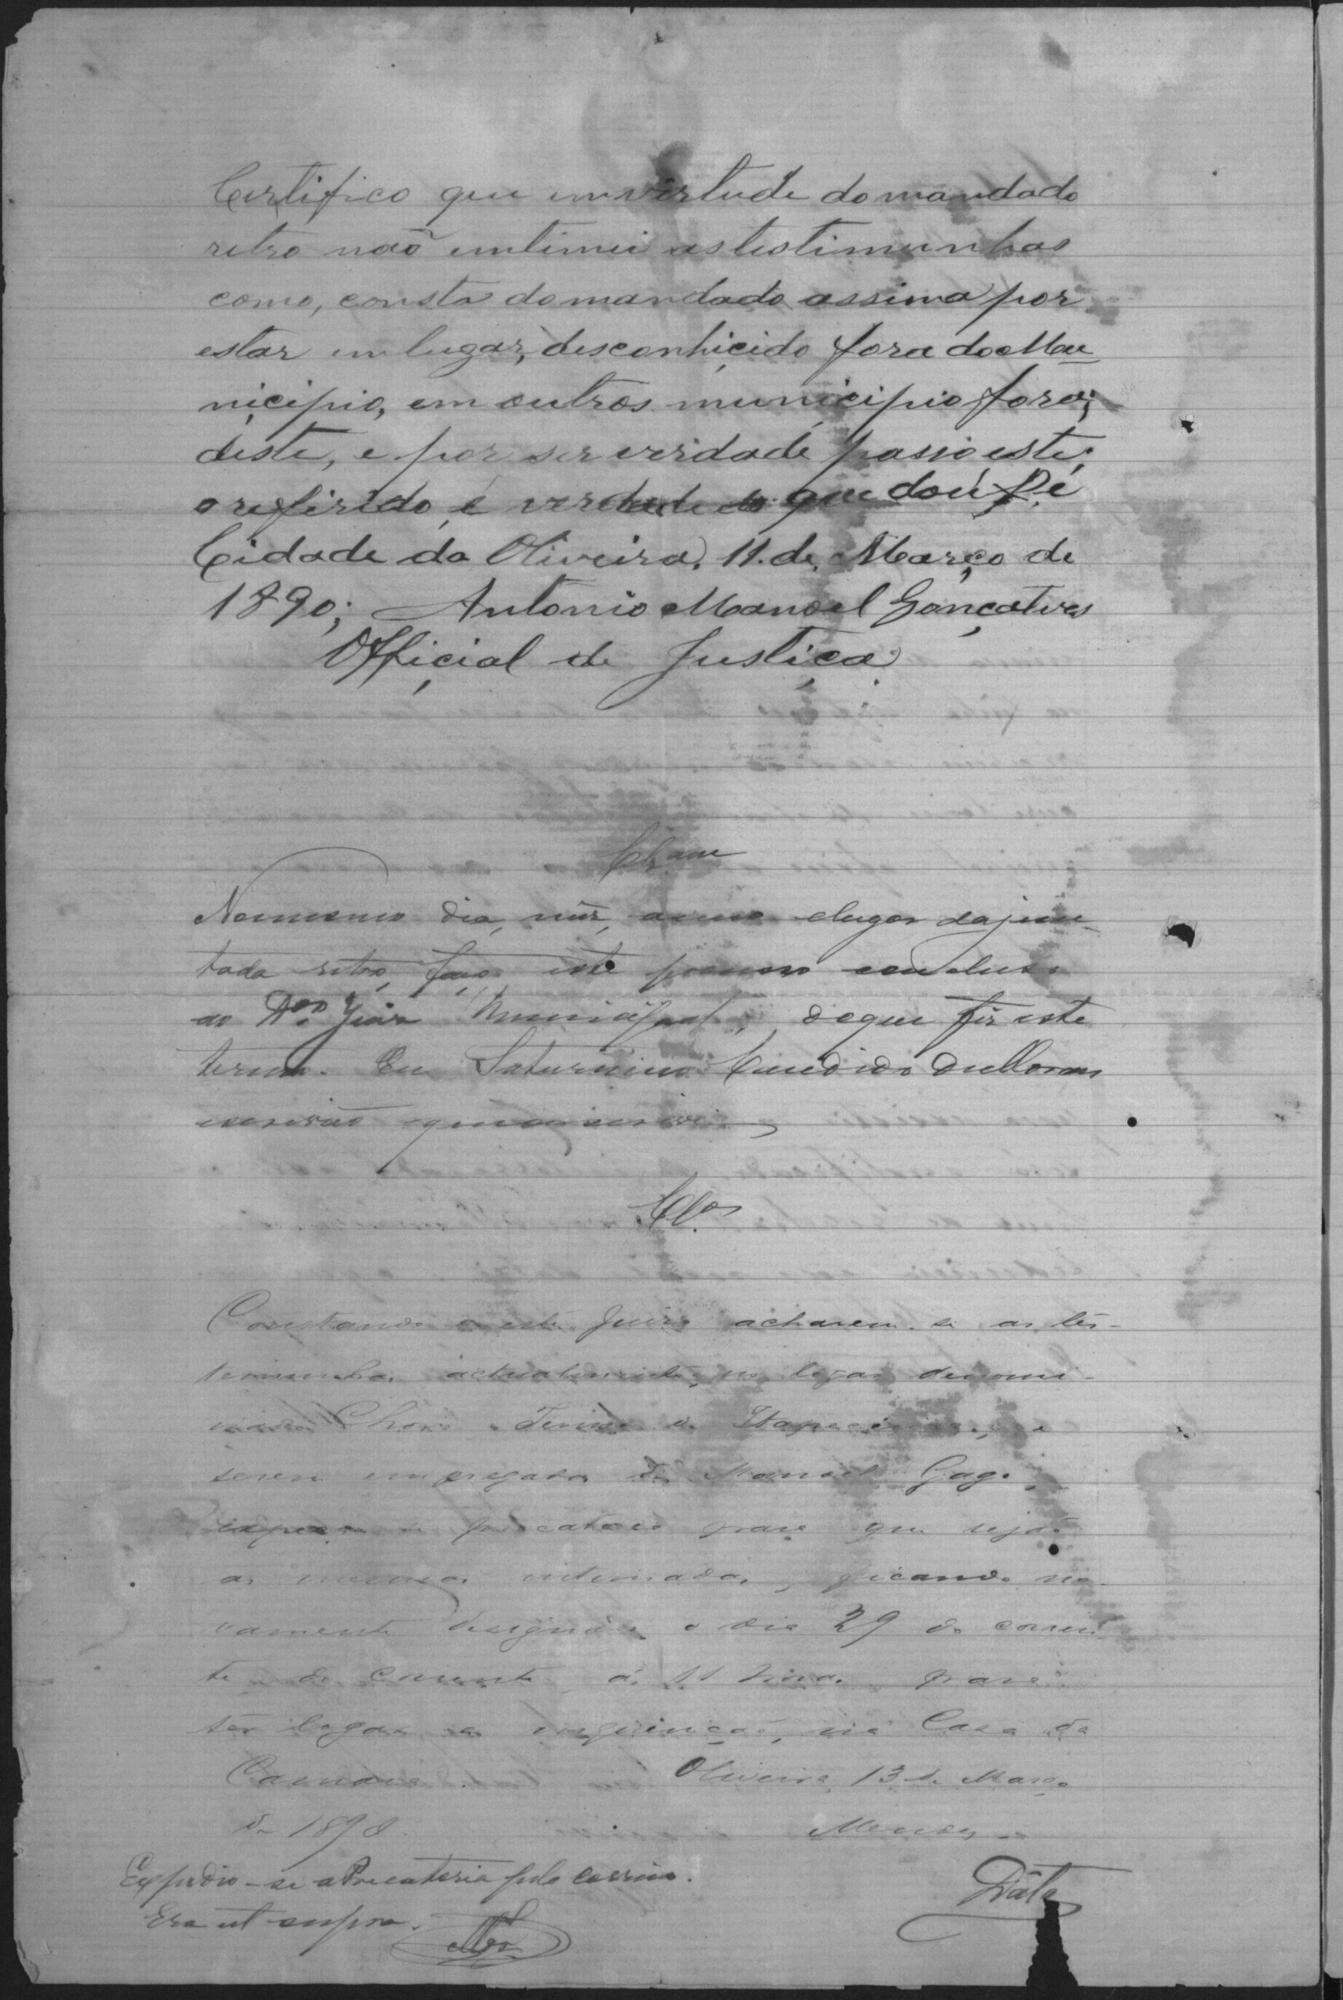 Certifico que em virtude do mandado
retro não entimei as testimunhas
como, consta do mandado assima por
estar em lugar, desconhicido fora do Mu
nicipio, em outros municipio fora,
deste, e por ser verdade passo este,
o refirido é verdade do que dou fé
Cidade da Oliveira, 11 de Março de
1890; Antonio Manoel Gonçalves
Official de Justiça
Clz.am
No mesmo dia, mez, anno e lugar da jun-
tada retro, faço este processo concluso
ao Dor. Juiz Municipal, do que fiz este
termo. Eu Saturnino Candido
escrivão que o escrevi
Clos
Constando a este Juizo acharem-se as tes-
temunhas actualmente, no logar denomi-
nado e Itapecerica, e
serem empregados de Manoel Gago,
expeça-se precatoria para que sejão
as mesmas intimadas, ficando no-
vamente designado o dia 29 do corren
te do corrente ás 11 horas para
ter logar a inquirição, na Casa da
Camara. Oliveira, 13 de Março
de 1890. Mendes
Expedio-se a Precatoria pelo correio.
Era ut supra.
Data